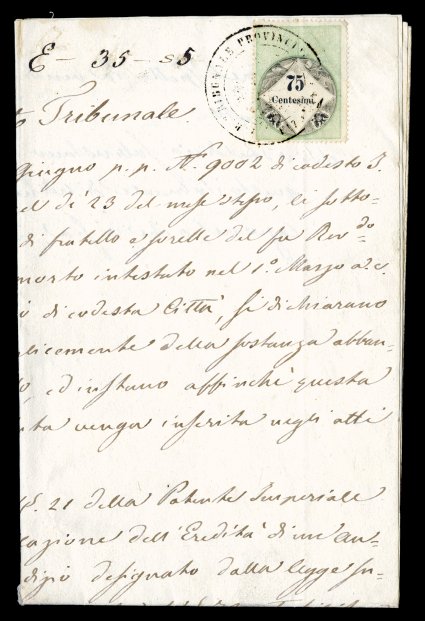 E - 35 - s5
TRIBUNALE PROVINCI
75
Centesimi
Tribunale.
giugno p. p. N.º 9002 di codesto I.
del di 23 del mese stesso, li sotto=
di fratello e sorelle del fu Rev.do
morto intestato nel 1.º Marzo a. c.
di codesta Città, si dichiarano
plicemente della sostanza abban=
ed instano affinchè questa
venga inserita negli atti
§. 21 della Patente Imperiale
cazione dell'Eredità di un au=
dizio designato dalla legge su=